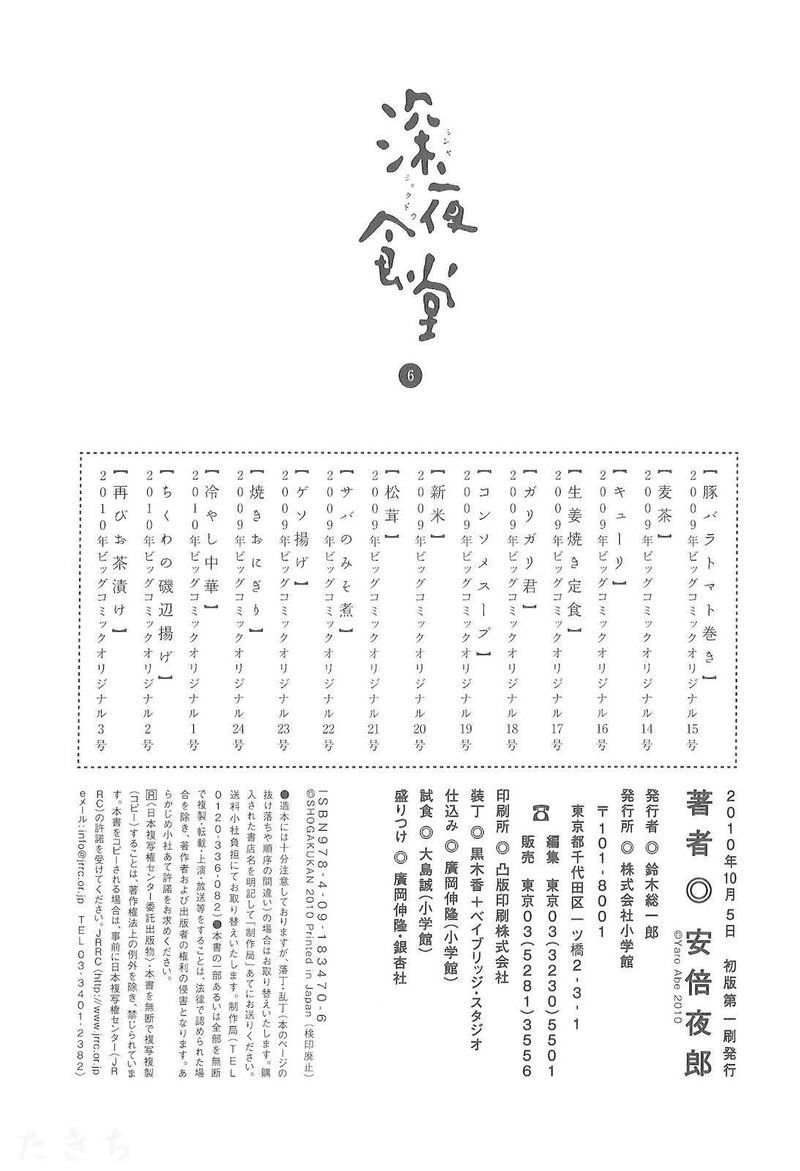 深夜食堂
シンヤ
ショクドウ
6
【豚バラトマト巻き】
2009年ビッグコミックオリジナル15号
【麦茶】
2009年ビッグコミックオリジナル14号
【キューリ】
2009年ビッグコミックオリジナル16号
【生姜焼き定食】
2009年ビッグコミックオリジナル17号
【ガリガリ君】
2009年ビッグコミックオリジナル18号
【コンソメスープ】
2009年ビッグコミックオリジナル19号
【新米】
2009年ビッグコミックオリジナル20号
【松茸】
2009年ビッグコミックオリジナル21号
【サバのみそ煮】
2009年ビッグコミックオリジナル22号
【ゲソ揚げ】
2009年ビッグコミックオリジナル23号
【焼きおにぎり】
2009年ビッグコミックオリジナル24号
【冷やし中華】
2010年ビッグコミックオリジナル1号
【ちくわの磯辺揚げ】
2010年ビッグコミックオリジナル2号
【再びお茶漬け】
2010年ビッグコミックオリジナル3号
2010年10月5日 初版第一刷発行
著者◎安倍夜郎
©Yaro Abe 2010
発行者◎鈴木総一郎
発行所◎株式会社小学館
〒101-8001
東京都千代田区一ツ橋2-3-1
☎ 編集 東京03(3230)5501
販売 東京03(5281)3556
印刷所◎凸版印刷株式会社
装丁◎黒木香+ベイブリッジ・スタジオ
仕込み◎廣岡伸隆(小学館)
試食◎大島誠(小学館)
盛りつけ◎廣岡伸隆・銀杏社
ISBN978-4-09-183470-6
©SHOGAKUKAN 2010 Printed in Japan (検印廃止)
●造本には十分注意しておりますが、落丁・乱丁(本のページの
抜け落ちや順序の間違い)の場合はお取り替えいたします。購
入された書店名を明記して「制作局」あてにお送りください。
送料小社負担にてお取り替えいたします。制作局(TEL
0120-336-082)●本書の一部あるいは全部を無断
で複製・転載・上演・放送等をすることは、法律で認められた場
合を除き、著作者および出版者の権利の侵害となります。あ
らかじめ小社あて許諾をお求めください。
R(日本複写権センター委託出版物)・本書を無断で複写複製
(コピー)することは、著作権法上の例外を除き、禁じられていま
す。本書をコピーされる場合は、事前に日本複写権センター(JR
RC)の許諾を受けてください。JRRC(http://www.jrrc.or.jp
eメール:info@jrrc.or.jp TEL03-3401-2382)
たきち